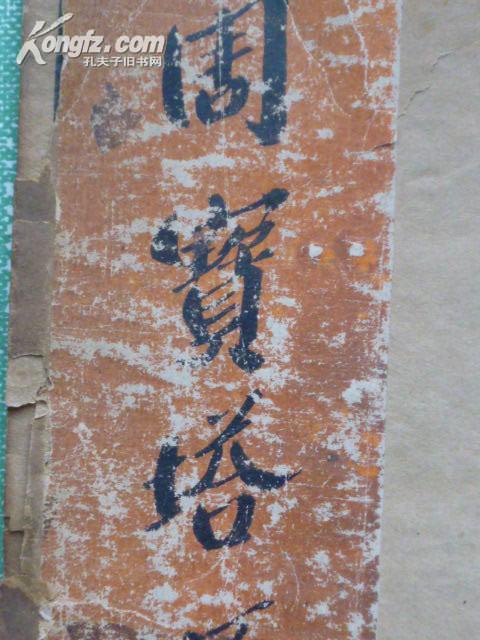 Kongfz.com
孔夫子旧书网
周寶塔